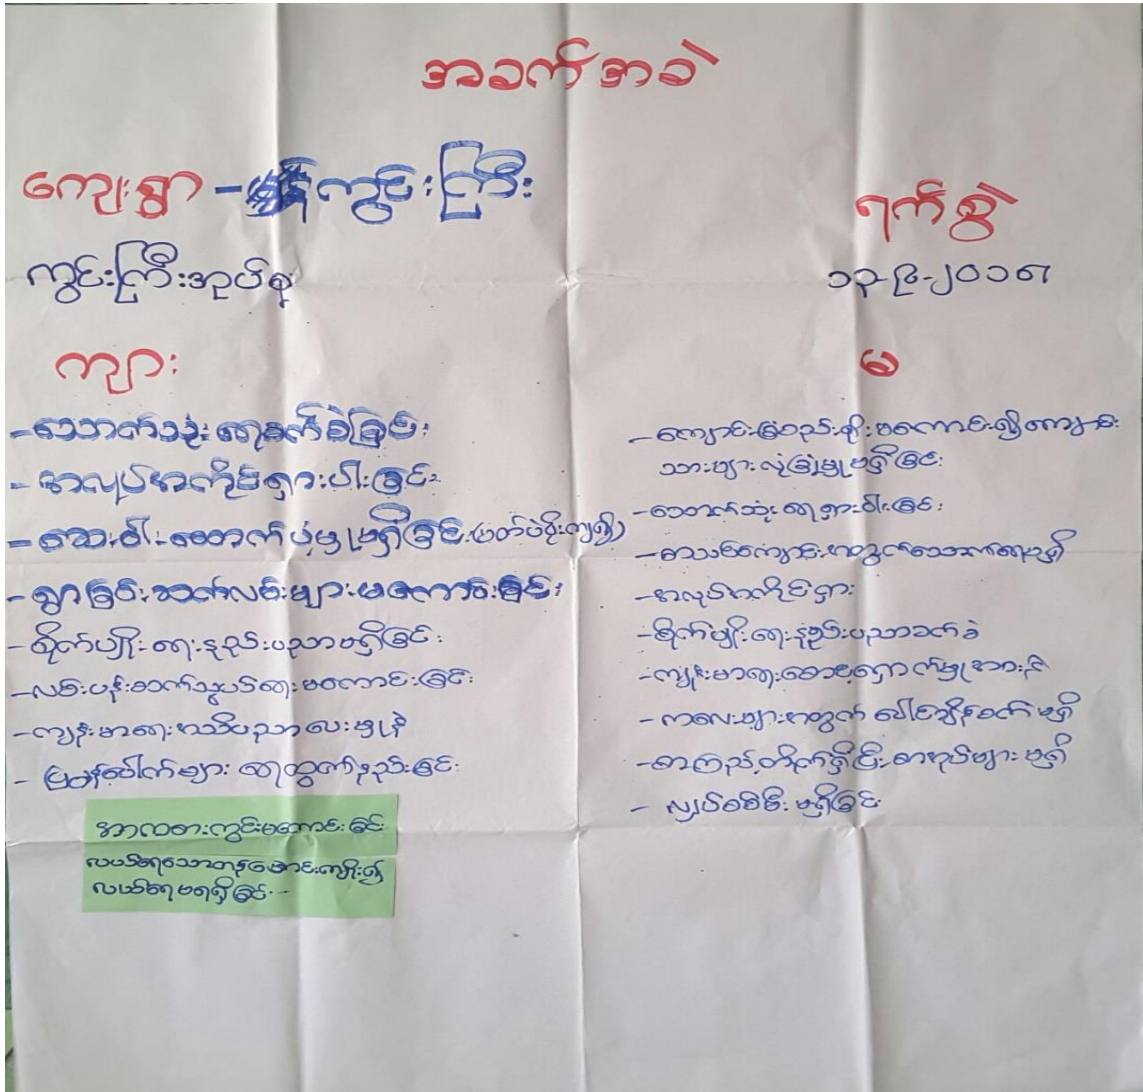 အခက်အခဲ
ကျေးရွာ - ကွင်းကြီး
ရက်စွဲ
ကွင်းကြီးအုပ်စု
၁၃-၆-၂၀၁၈
ကျား
- သောက်သုံးရေခက်ခဲခြင်း
- အလုပ်အကိုင်ရှားပါးခြင်း
- ဆေးဝါးထောက်ပံ့မှုမရှိခြင်း (မတ်ပဲစိုးကျ၍)
- ရွာခြင်းဆက်လမ်းများမကောင်းခြင်း
- စိုက်ပျိုးရေးနည်းပညာမရှိခြင်း
- လမ်းပန်းဆက်သွယ်ရေးမကောင်းခြင်း
- ကျန်းမာရေးအသိပညာပေးမှုနဲ
- မြေပေါက်များ ရေထွက်နည်းခြင်း
အားကစားကွင်းမကောင်းခြင်း
လယ်ရေသောတူးမြောင်းကျိုး၍
လယ်ရေမရရှိခြင်း
မ
- ကျောင်းခြံစည်းရိုးမကောင်း၍ကျောင်း
သားများလုံခြုံမှုမရှိခြင်း
- သောက်သုံးရေရှားပါးခြင်း
- စာသင်ကျောင်းအတွက်သောက်ရေမရှိ
- အလုပ်အကိုင်ရှား
- စိုက်ပျိုးရေးနည်းပညာခက်ခဲ
- ကျန်းမာရေးစောင့်ရှောက်မှုအားနည်း
- ကလေးများအတွက် ပေါင်ချိန်စက် မရှိ
- စာကြည့်တိုက်ရှိပြီး စာအုပ်များ မရှိ
- လျှပ်စစ်မီး မရှိခြင်း